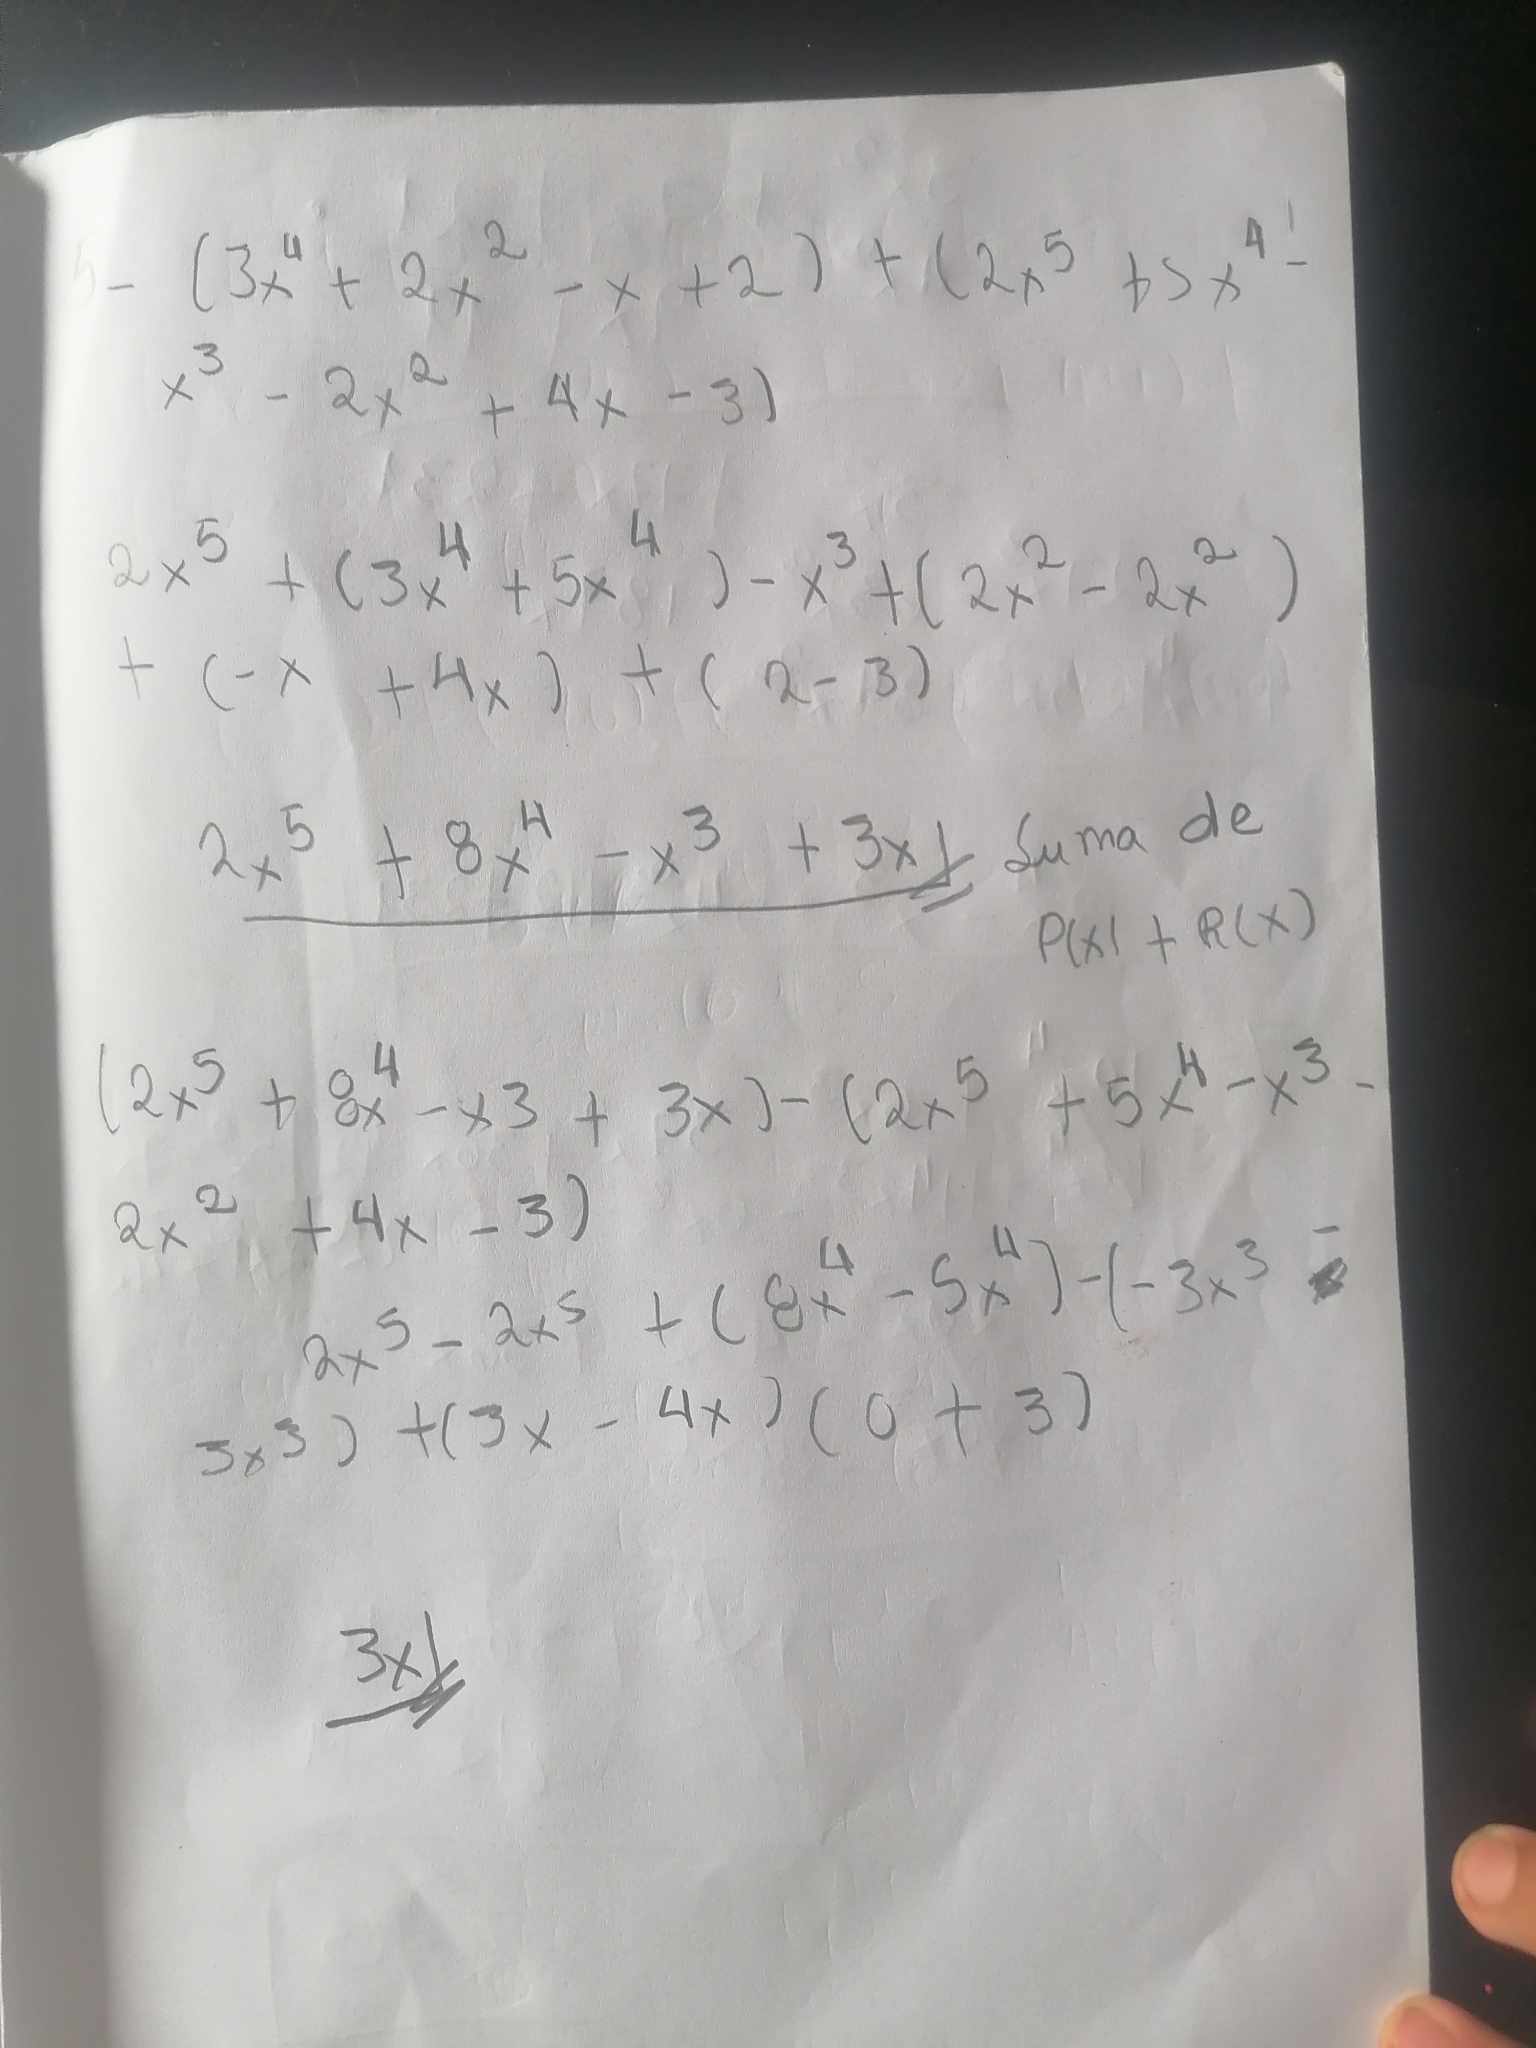 5- (3x⁴ + 2x² - x + 2) + (2x⁵ + 5x⁴ -
x³ - 2x² + 4x - 3)
2x⁵ + (3x⁴ + 5x⁴) - x³ + (2x² - 2x²)
+ (-x + 4x) + (2 - 3)
2x⁵ + 8x⁴ - x³ + 3x Suma de
P(x) + R(x)
(2x⁵ + 8x⁴ - x3 + 3x) - (2x⁵ + 5x⁴ - x³ -
2x² + 4x - 3)
2x⁵ - 2x⁵ + (8x⁴ - 5x⁴) - (-3x³ -
3x³) + (3x - 4x) (0 + 3)
3x